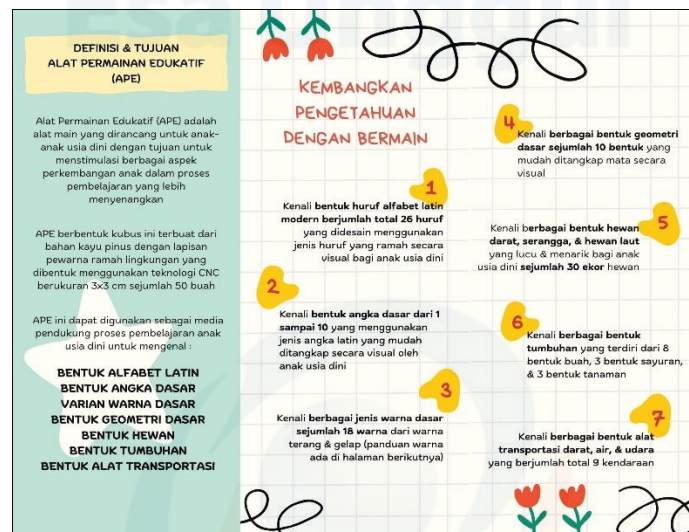 DEFINISI & TUJUAN
ALAT PERMAINAN EDUKATIF
(APE)
Alat Permainan Edukatif (APE) adalah
alat main yang dirancang untuk anak-
anak usia dini dengan tujuan untuk
menstimulasi berbagai aspek
perkembangan anak dalam proses
pembelajaran yang lebih
menyenangkan
APE berbentuk kubus ini terbuat dari
bahan kayu pinus dengan lapisan
pewarna ramah lingkungan yang
dibentuk menggunakan teknologi CNC
berukuran 3x3 cm sejumlah 50 buah
APE ini dapat digunakan sebagai media
pendukung proses pembelajaran anak
usia dini untuk mengenal :
BENTUK ALFABET LATIN
BENTUK ANGKA DASAR
VARIAN WARNA DASAR
BENTUK GEOMETRI DASAR
BENTUK HEWAN
BENTUK TUMBUHAN
BENTUK ALAT TRANSPORTASI
KEMBANGKAN
PENGETAHUAN
DENGAN BERMAIN
1
Kenali bentuk huruf alfabet latin
modern berjumlah total 26 huruf
yang didesain menggunakan
jenis huruf yang ramah secara
visual bagi anak usia dini
2
Kenali bentuk angka dasar dari 1
sampai 10 yang menggunakan
jenis angka latin yang mudah
ditangkap secara visual oleh
anak usia dini
3
Kenali berbagai jenis warna dasar
sejumlah 18 warna dari warna
terang & gelap (panduan warna
ada di halaman berikutnya)
4
Kenali berbagai bentuk geometri
dasar sejumlah 10 bentuk yang
mudah ditangkap mata secara
visual
5
Kenali berbagai bentuk hewan
darat, serangga, & hewan laut
yang lucu & menarik bagi anak
usia dini sejumlah 30 ekor hewan
6
Kenali berbagai bentuk
tumbuhan yang terdiri dari 8
bentuk buah, 3 bentuk sayuran,
& 3 bentuk tanaman
7
Kenali berbagai bentuk alat
transportasi darat, air, & udara
yang berjumlah total 9 kendaraan